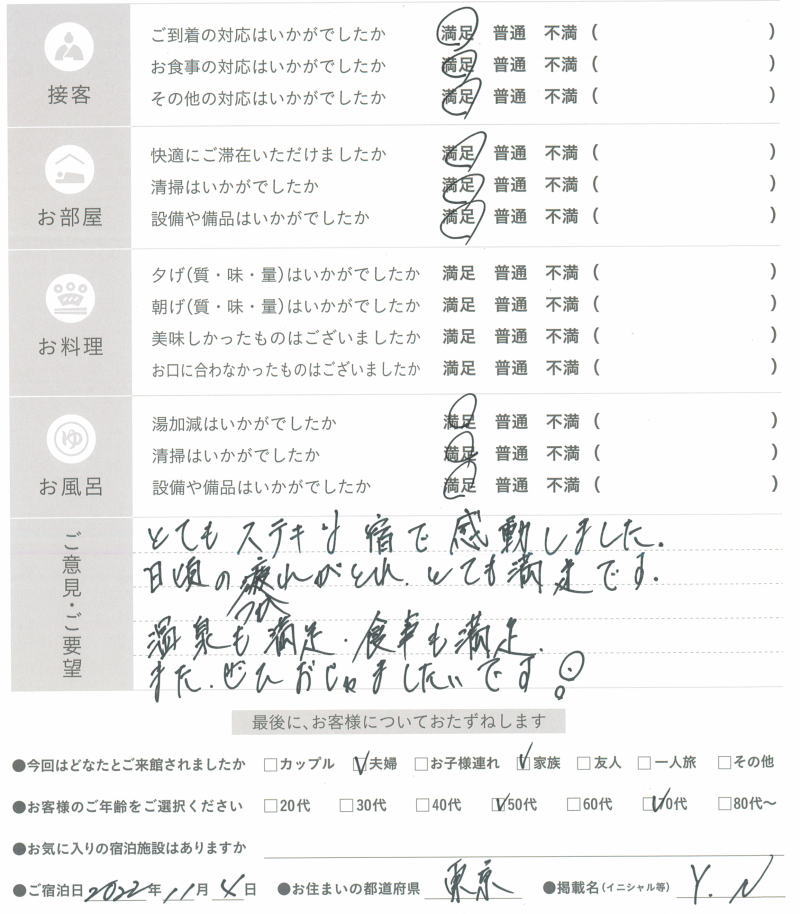 接客
ご到着の対応はいかがでしたか 満足 普通 不満 ( )
お食事の対応はいかがでしたか 満足 普通 不満 ( )
その他の対応はいかがでしたか 満足 普通 不満 ( )
お部屋
快適にご滞在いただけましたか 満足 普通 不満 ( )
清掃はいかがでしたか 満足 普通 不満 ( )
設備や備品はいかがでしたか 満足 普通 不満 ( )
お料理
夕げ(質・味・量)はいかがでしたか 満足 普通 不満 ( )
朝げ(質・味・量)はいかがでしたか 満足 普通 不満 ( )
美味しかったものはございましたか 満足 普通 不満 ( )
お口に合わなかったものはございましたか 満足 普通 不満 ( )
ゆ
お風呂
湯加減はいかがでしたか 満足 普通 不満 ( )
清掃はいかがでしたか 満足 普通 不満 ( )
設備や備品はいかがでしたか 満足 普通 不満 ( )
ご意見・ご要望
とてもステキな宿で感動しました.
日頃の疲れがとれ、とても満足です.
つか
温泉も満足.食事も満足.
また、ぜひおじゃましたいです!
最後に、お客様についておたずねします
●今回はどなたとご来館されましたか □カップル □夫婦 □お子様連れ □家族 □友人 □一人旅 □その他
●お客様のご年齢をご選択ください □20代 □30代 □40代 □50代 □60代 □70代 □80代〜
●お気に入りの宿泊施設はありますか
●ご宿泊日 2022年 11月 4日 ●お住まいの都道府県 東京 ●掲載名(イニシャル等) Y. N